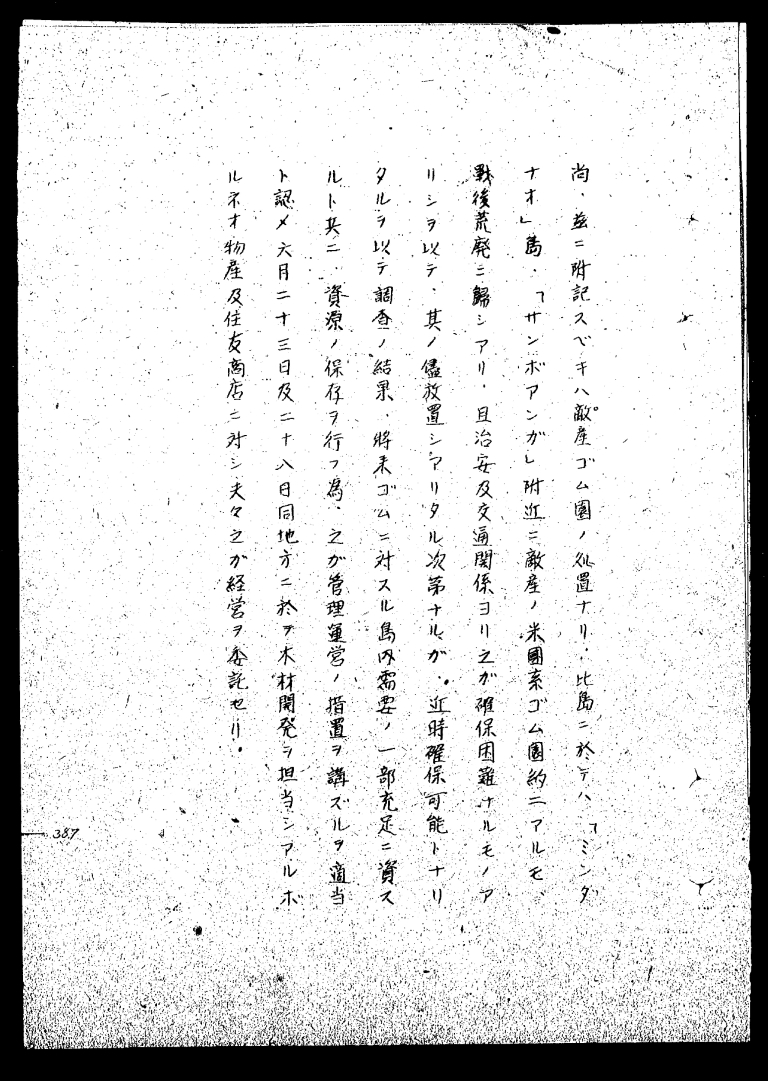 尚、茲ニ附記スベキハ敵産ゴム園ノ処置ナリ、比島ニ於テハ「ミンダ
ナオ」島、「サンボアンガ」附近ニ敵産ノ米國系ゴム園約ニアルモ、
戰後荒廃ニ歸シアリ、且治安及交通関係ヨリ之が確保困難ナルモノア
リシヲ以テ、其ノ儘放置シアリタル次第ナルガ、近時確保可能トナリ
タルヲ以テ調査ノ結果、將来ゴムニ対スル島内需要ノ一部充足ニ資ス
ルト共ニ、資源ノ保存ヲ行フ為、之が管理運営ノ措置ヲ講ズルヲ適当
ト認メ六月二十三日及二十八日同地方ニ於テ木材開発ヲ担当シアルボ
ルネオ物産及住友商店ニ対シ夫々之が経営ヲ委託セリ。
387